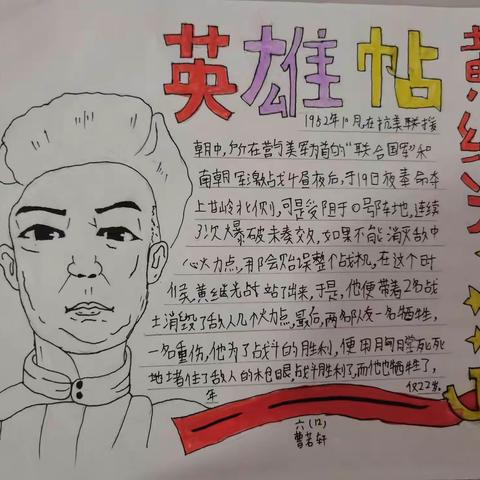 英雄帖
黄继光
1952年10月,在抗美联援
朝中,所在营与美军为首的“联合国军”和
南朝军激战4昼夜后,于19日夜奉命夺
上甘岭北侧,可是受阻于0号阵地,连续
3次爆破未奏效,如果不能消灭敌中
心火力点,那会贻误整个战机,在这个时
候,黄继光战站了出来,于是,他便带着2名战
士消毁了敌人几个火力点,最后,两名队友一名牺牲,
一名重伤,他为了战斗的胜利,便用胸膛死死
地堵住了敌人的枪眼,战斗胜利了,而他也牺牲了,
年仅22岁
六(12)
曹若轩